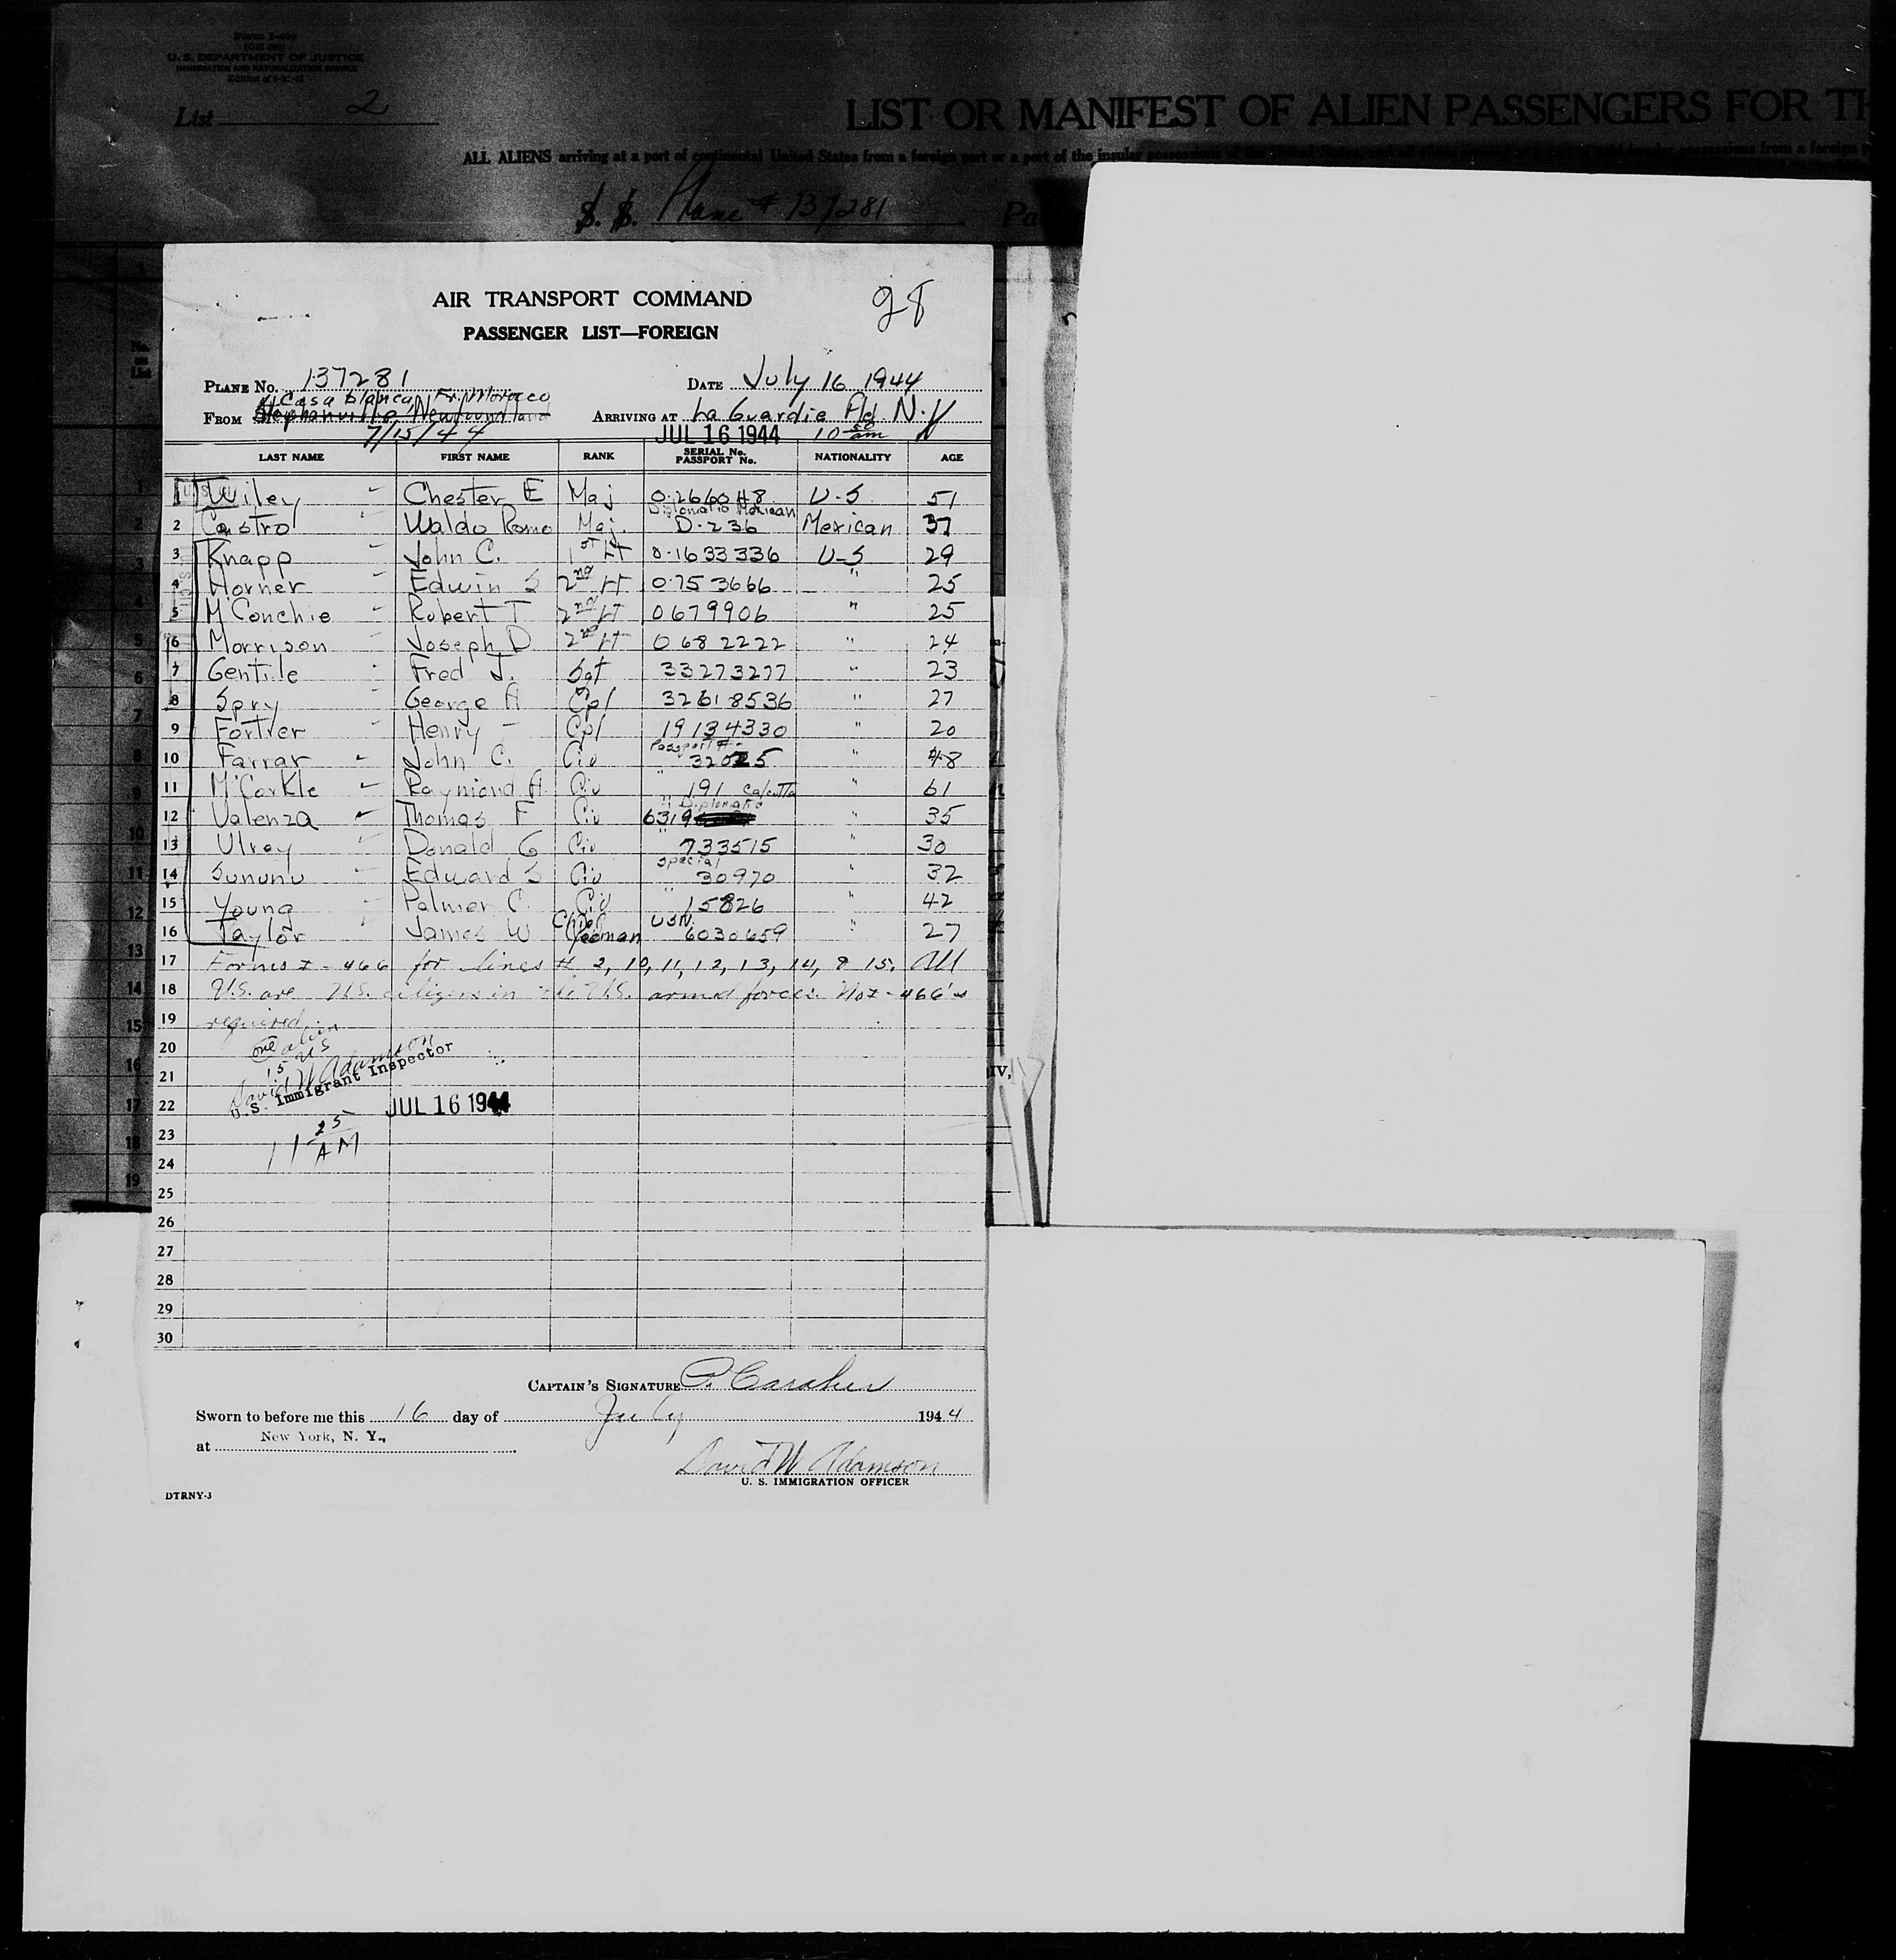 Form I-466
U. S. DEPARTMENT OF JUSTICE
IMMIGRATION AND NATURALIZATION SERVICE
List 2
LIST OR MANIFEST OF ALIEN PASSENGERS FOR TH
ALL ALIENS arriving at a port of continental United States from a foreign port or a port of the insular possessions
S. S. Plane # 137281
AIR TRANSPORT COMMAND
28
PASSENGER LIST—FOREIGN
PLANE No. 137281 DATE July 16 1944
Casablanca, Fr. Morocco
FROM Stephenville, Newfoundland ARRIVING AT La Guardia Fld N.Y
7/15/44 JUL 16 1944 10 50 am
LAST NAME FIRST NAME RANK SERIAL No. PASSPORT No. NATIONALITY AGE
1 Wiley Chester E Maj 0-266048 U-S 51
Diplomatic Mexican
2 Castro Waldo Romo Maj. D-236 Mexican 37
3 Knapp John C. 1st Lt 0-1633336 U-S 29
4 Horner Edwin S 2nd Lt 0-753666 " 25
5 McConchie Robert T 2nd Lt 0679906 " 25
6 Morrison Joseph D 2nd Lt 0682222 " 24
7 Gentile Fred J. Sgt 33273277 " 23
8 Spry George A Cpl 32618536 " 27
9 Fortver Henry - Cpl 19134330 " 20
Passport #
10 Farrar John C. Civ 32025 " 48
11 McCorkle Raymond A. Civ " 191 Calcutta " 61
" Diplomatic
12 Valenza Thomas F Civ 6319 " 35
13 Ulrey Donald G Civ " 733515 " 30
Special
14 Sununu Edward S Civ 30970 " 32
15 Young Palmer C. Civ " 15826 " 42
16 Taylor James W Chief Yeoman USN 6030659 " 27
17 Forms I-466 for lines # 2, 10, 11, 12, 13, 14, & 15. All
18 U.S. are U.S. citizens in the U.S. armed forces. No I-466's
19 required.
20 one alien
15 US
21 David W Adamson
U.S. Immigrant Inspector
22 JUL 16 1944
23 11 25 AM
24
25
26
27
28
29
30
CAPTAIN'S SIGNATURE P. Caraher
Sworn to before me this 16 day of July 1944
at New York, N. Y.,
David W Adamson
U. S. IMMIGRATION OFFICER
DTRNY-3